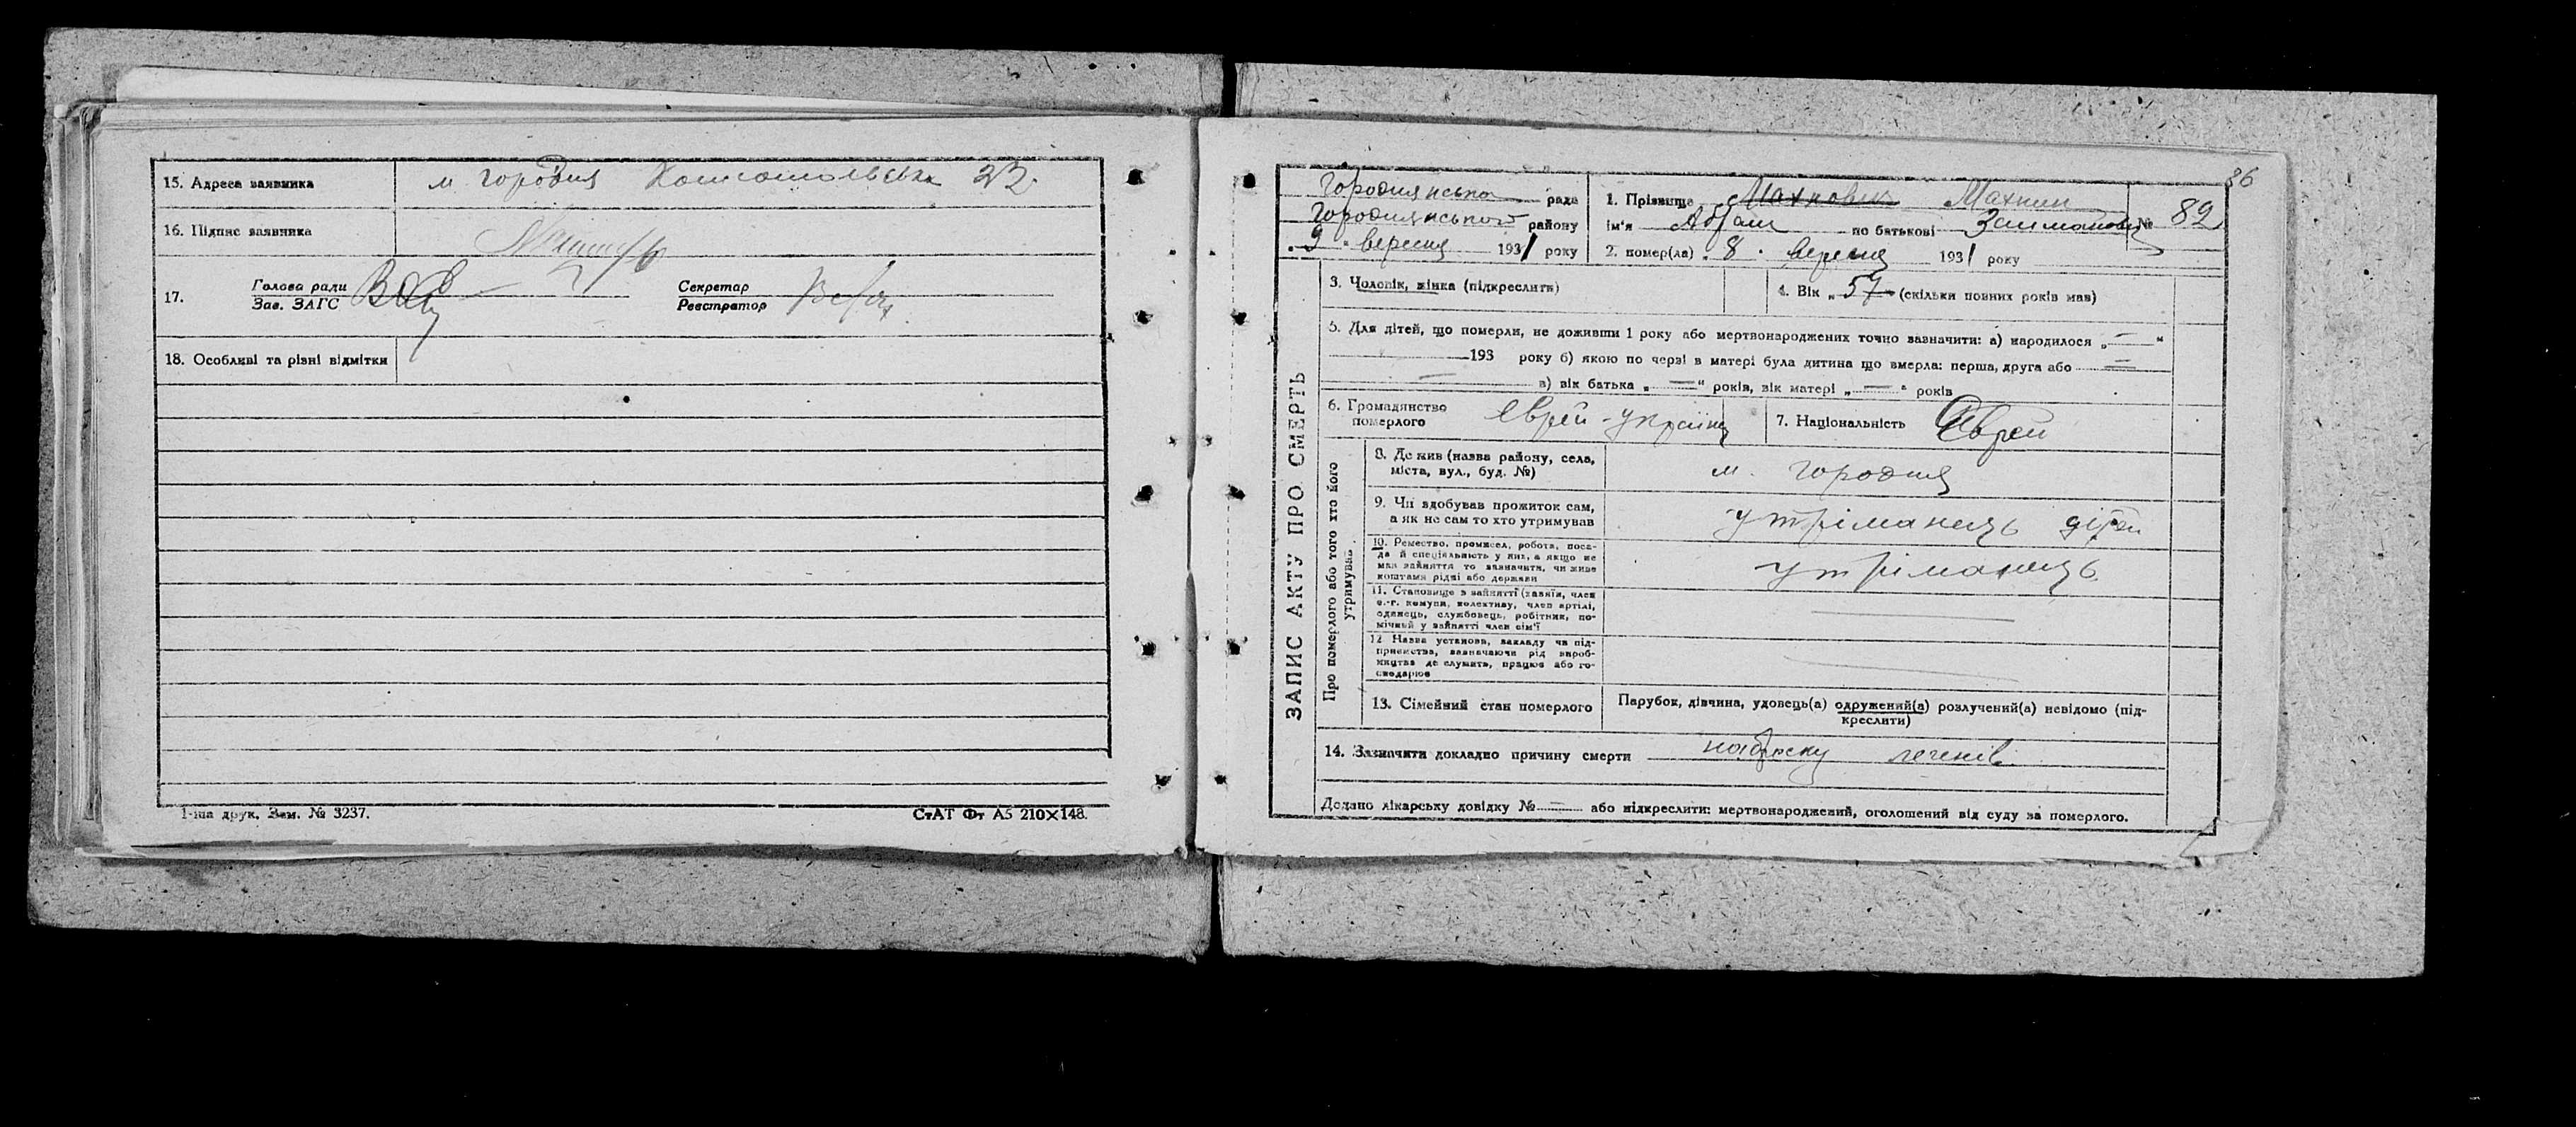 15. Адреса заявника м. Городня Комсомольська 22.
16. Підпис заявника
17. Голова ради
Зав. ЗАГС
Секретар
Реєстратор
18. Особливі та різні відмітки
1-ша друк. Зам. № 3237.
СтАТ Фт А5 210×148.
36
Городнянська рада
Городнянського району
„9“ вересня 1931 року
1. Прізвище Махнин
ім'я Абрам по батькові № 82
2. помер(ла) „8“ вересня 1931 року
ЗАПИС АКТУ ПРО СМЕРТЬ
3. Чоловік, жінка (підкреслити)
4. Вік „57“ (скільки повних років мав)
5. Для дітей, що померли, не доживши 1 року або мертвонароджених точно зазначити: а) народилося „—“
193 року б) якою по черзі в матері була дитина що вмерла: перша, друга або —
— в) вік батька „—“ років, вік матері „—“ років
6. Громадянство
померлого Єврей-українец
7. Національність Єврей
Про померлого або того хто його
утримував
8. Де жив (назва району, села,
міста, вул., буд. №) м. Городня
9. Чи здобував прожиток сам,
а як не сам то хто утримував утріманець дітей
10. Ремество, промисел, робота, поса-
да й спеціяльність у них, а якщо не
мав зайняття то зазначити, чи живе
коштами рідні або держави утріманець
11. Становище в зайнятті (хазяїн, член
с.-г. комуни, колективу, член артілі,
одинець, службовець, робітник, по-
мічний у зайнятті член сім'ї —
12 Назва установи, закладу чи під-
приємства, зазначаючи рід вироб-
ництва де служить, працює або го-
сподарює —
13. Сімейний стан померлого Парубок, дівчина, удовець(а) одружений(а) розлучений(а) невідомо (під-
креслити)
14. Зазначити докладно причину смерти
Додано лікарську довідку №— або підкреслити: мертвонароджений, оголошений від суду за померлого.